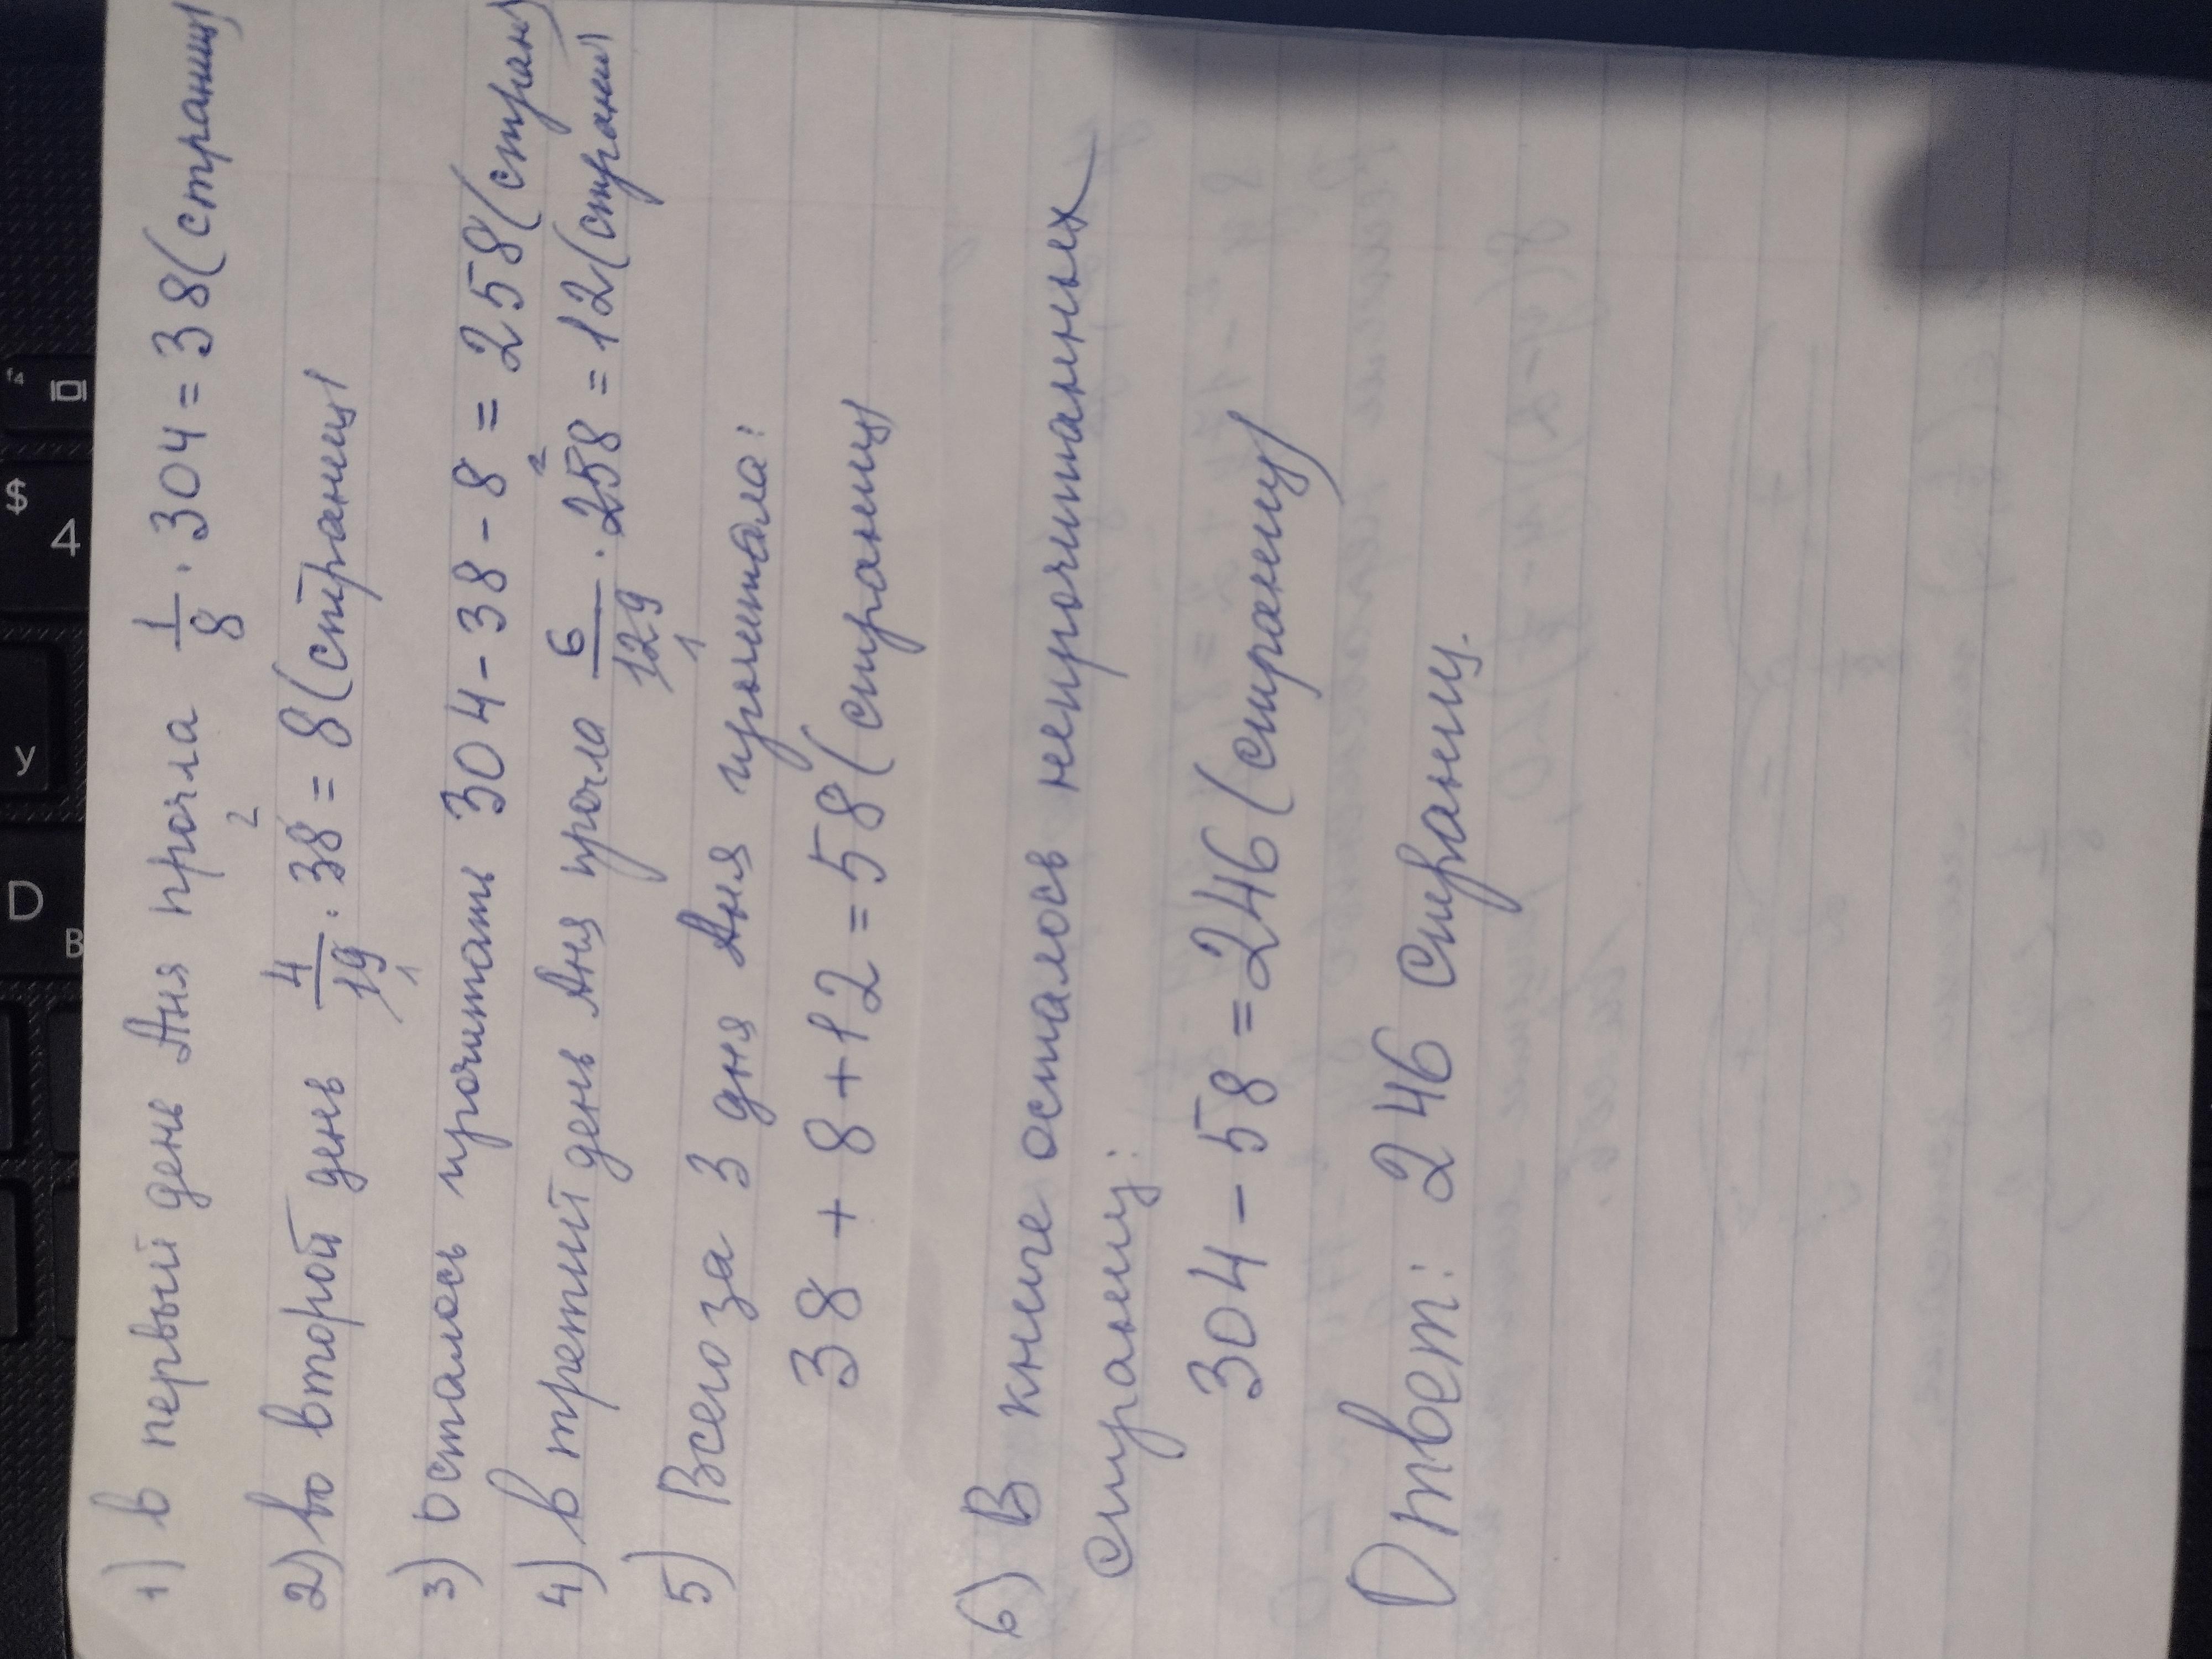 1) в первый день Аня прочла 1/8 · 304 = 38 (страниц)
2) во второй день 4/19 · 38 = 8 (страниц)
2
1
3) осталось прочитать 304 - 38 - 8 = 258 (страниц)
4) в третий день Аня прочла 6/129 · 258 = 12 (страниц)
2
1
5) Всего за 3 дня Аня прочитала:
38 + 8 + 12 = 58 (страниц)
6) В книге осталось непрочитанных
страниц:
304 - 58 = 246 (страниц)
Ответ: 246 страниц.
f4
$
4
У
D
В